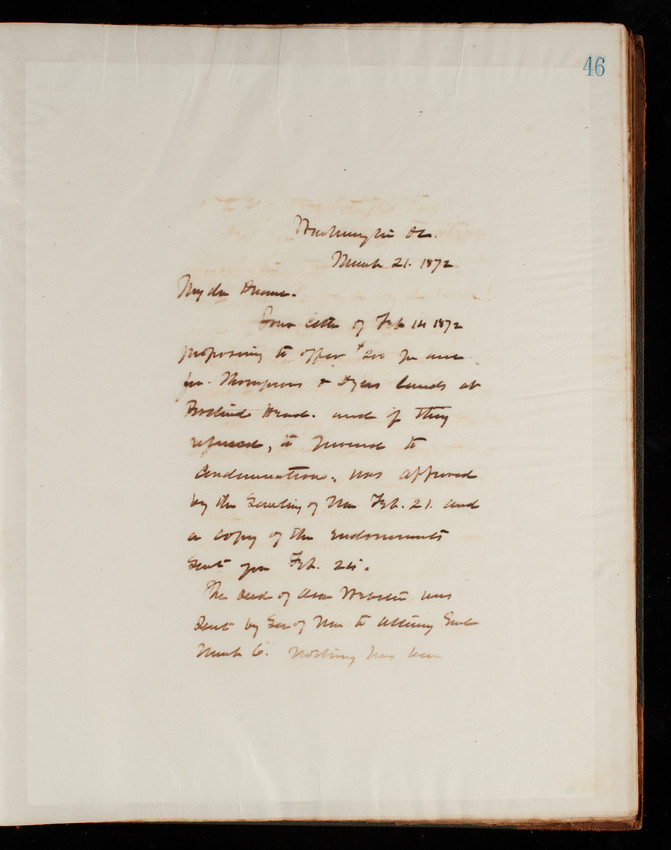 46
Washington DC.
March 21. 1872
My dear Duane.
Your letter of Feb 14 1872
proposing to offer $200 per acre
for Thompsons & Dyers lands at
Portland Head. and if they
refused, to proceed to
Condemnation, was approved
by the Secretary of War Feb. 21. and
a copy of the endorsements
sent you Feb. 24.
The deed of Webster was
sent by Sec of War to Attorney Genl
March 6. Nothing has been